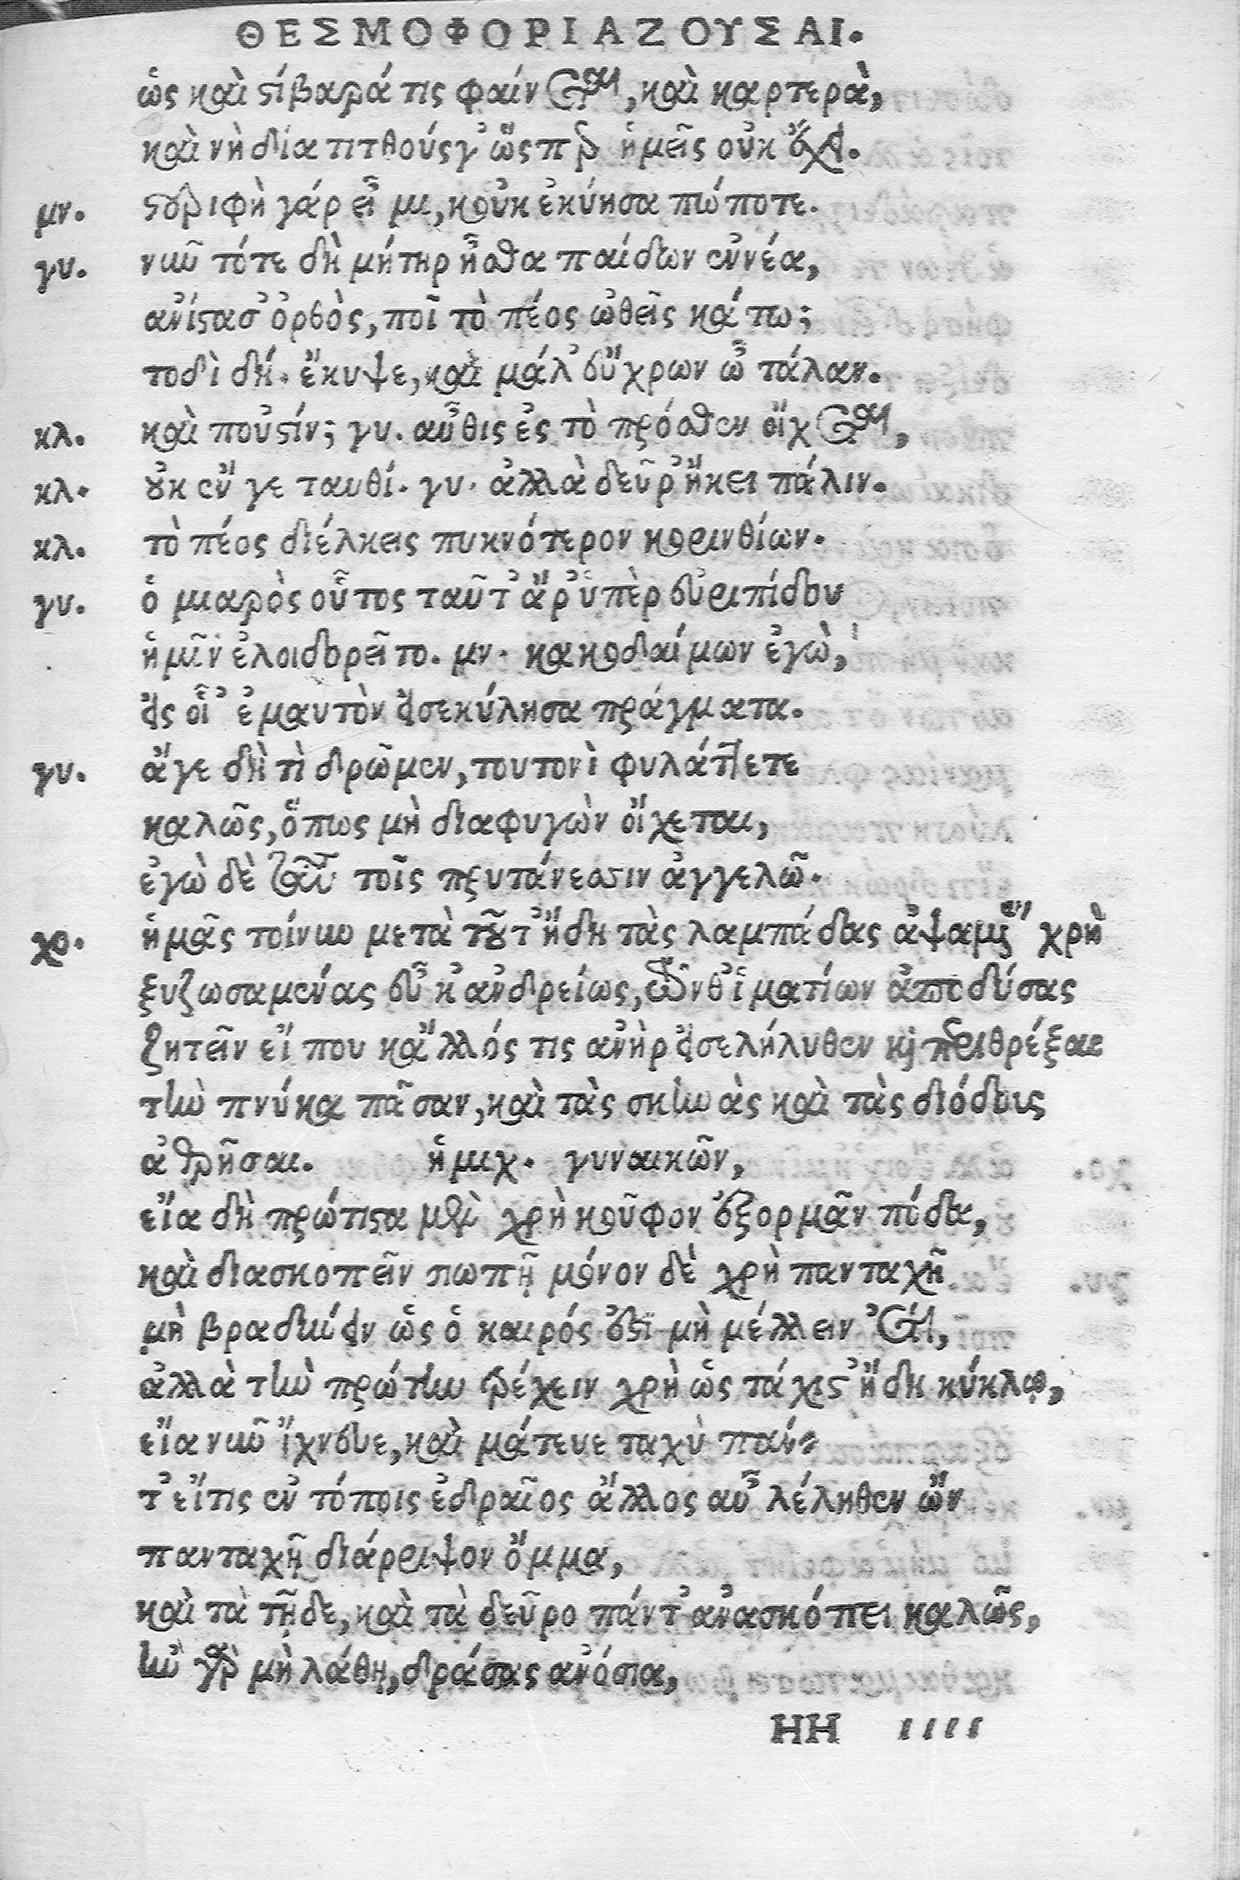 ΘΕΣΜΟΦΟΡΙΑΖΟΥΣΑΙ.
ὡς καὶ στιβαρά τις φαίνεται, καὶ καρτερὰ,
καὶ νὴ δία τιτθούς γ' ὥσπερ ἡμεῖς οὐκ ἔχει.
μν. στρίφη γάρ εἶμι, κοὐκ ἐκύησα πώποτε.
γυ. νῦν τότε δὴ μήτηρ ἦσθα παίδων ἐννέα,
ἀνίστασ' ὀρθὸς, ποῖ τὸ πέος ὠθεῖς κάτω;
τοδὶ δή. ἔκυψε, καὶ μάλ' εὔχρων ὦ τάλαν.
κλ. καὶ ποὖστίν; γυ. αὖθις ἐς τὸ πρόσθεν οἴχεται,
κλ. οὐκ ἔν γε ταυθί. γυ. ἀλλὰ δεῦρ' ἥκει πάλιν.
κλ. τὸ πέος διέλκεις πυκνότερον κορινθίων.
γυ. ὁ μιαρὸς οὗτος ταῦτ' ἄρ' ὑπὲρ εὐριπίδου
ἡμῖν ἐλοιδορεῖτο. μν. κακοδαίμων ἐγὼ,
εἰς οἷ' ἐμαυτὸν εἰσεκύλησα πράγματα.
γυ. ἄγε δὴ τὶ δρῶμεν, τουτονὶ φυλάττετε
καλῶς, ὅπως μὴ διαφυγὼν οἴχεται,
ἐγὼ δὲ ταῦτα τοῖς πρυτάνεσιν ἀγγελῶ.
χο. ἡμᾶς τοίνυν μετὰ τοῦτ' ἤδη τὰς λαμπάδας ἁψαμένας χρὴ
ξυζωσαμένας εὖ κἀνδρείως, τῶνθ' ἱματίων ἀποδύσας
ζητεῖν εἴ που κἄλλός τις ἀνὴρ εἰσελήλυθεν καὶ περιθρέξαι
τὴν πνύκα πᾶσαν, καὶ τὰς σκηνὰς καὶ τὰς διόδους
ἀθρῆσαι. ἡμιχ. γυναικῶν,
εἴα δὴ πρώτιστα μὲν χρὴ κοῦφον ἐξορμᾶν πόδα,
καὶ διασκοπεῖν σιωπῇ μόνον δὲ χρὴ πανταχῆ
μὴ βραδύνειν ὡς ὁ καιρός ἐστὶ μὴ μέλλειν ἔτι,
ἀλλὰ τὴν πρώτην τρέχειν χρὴ ὡς τάχιστ' ἤδη κύκλῳ,
εἴα νῦν ἴχνευε, καὶ μάτευε ταχὺ πάν
τ' εἴτις ἐν τόποις ἑδραῖος ἄλλος αὖ λέληθεν ὤν
πανταχῆ διάρριψον ὄμμα,
καὶ τὰ τῇδε, καὶ τὰ δεῦρο πάντ' ἀνασκόπει καλῶς,
ἢν γὰρ μὴ λάθῃ, δράσας ἀνόσια,
HH iiii